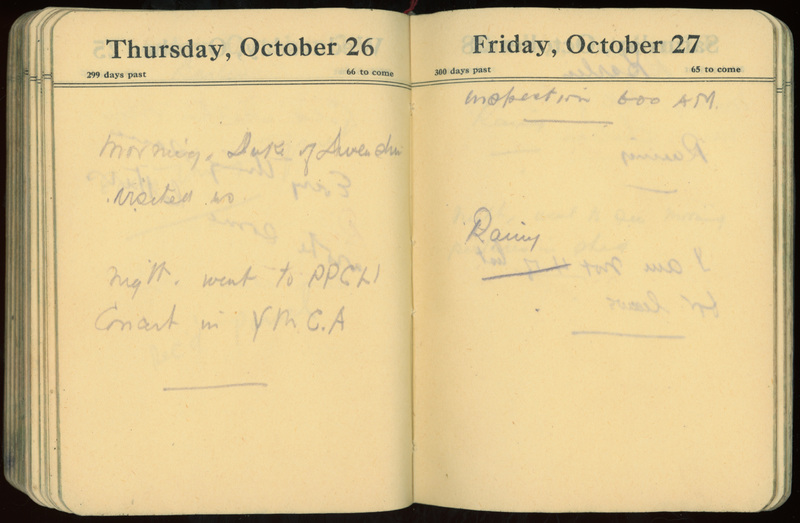 Thursday, October 26
299 days past 66 to come
Morning, Duke of
visited us
night. went to PPCLI
Concert in YMCA
Friday, October 27
300 days past 65 to come
Inspection 600 AM.
Rainy